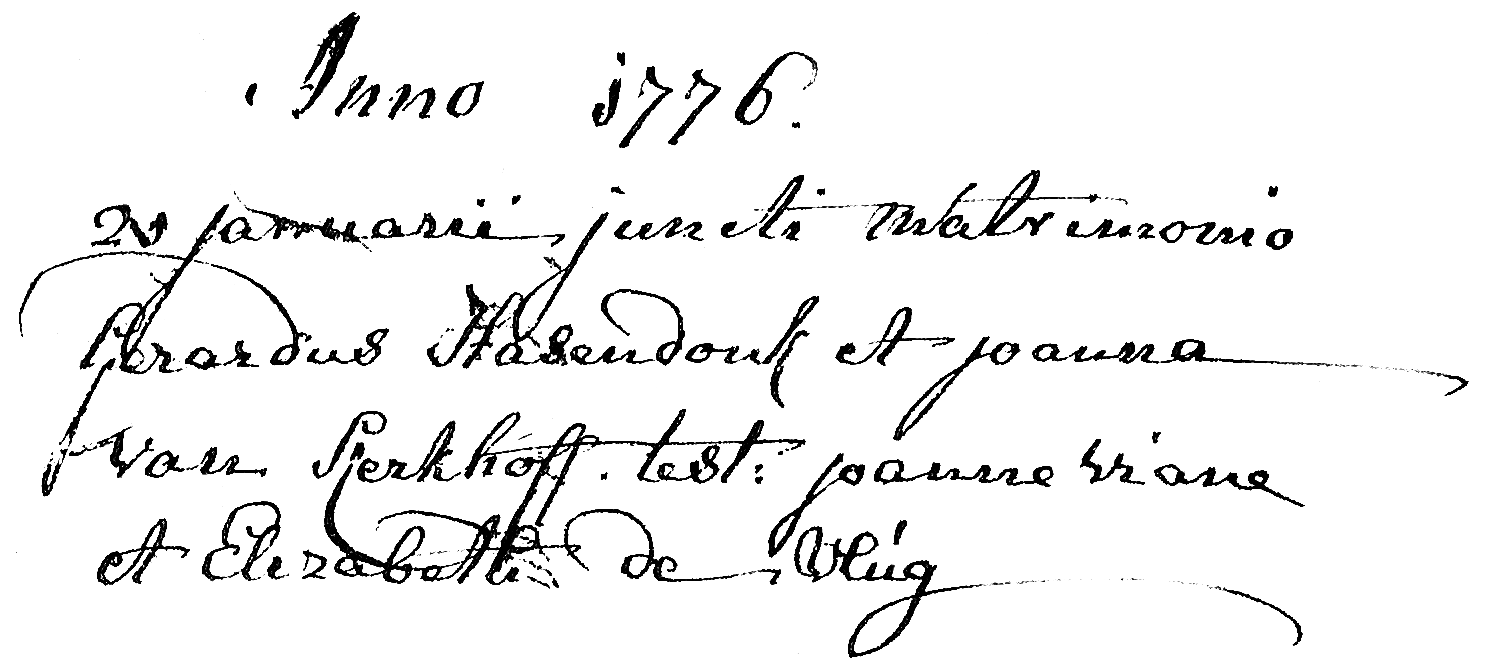 Anno 1776.
januarii juncti matrimonio
Gerardus Hasendonk et joanna
van Kerkhoff. test: joanne viane
et Elizabeth de Vlúg